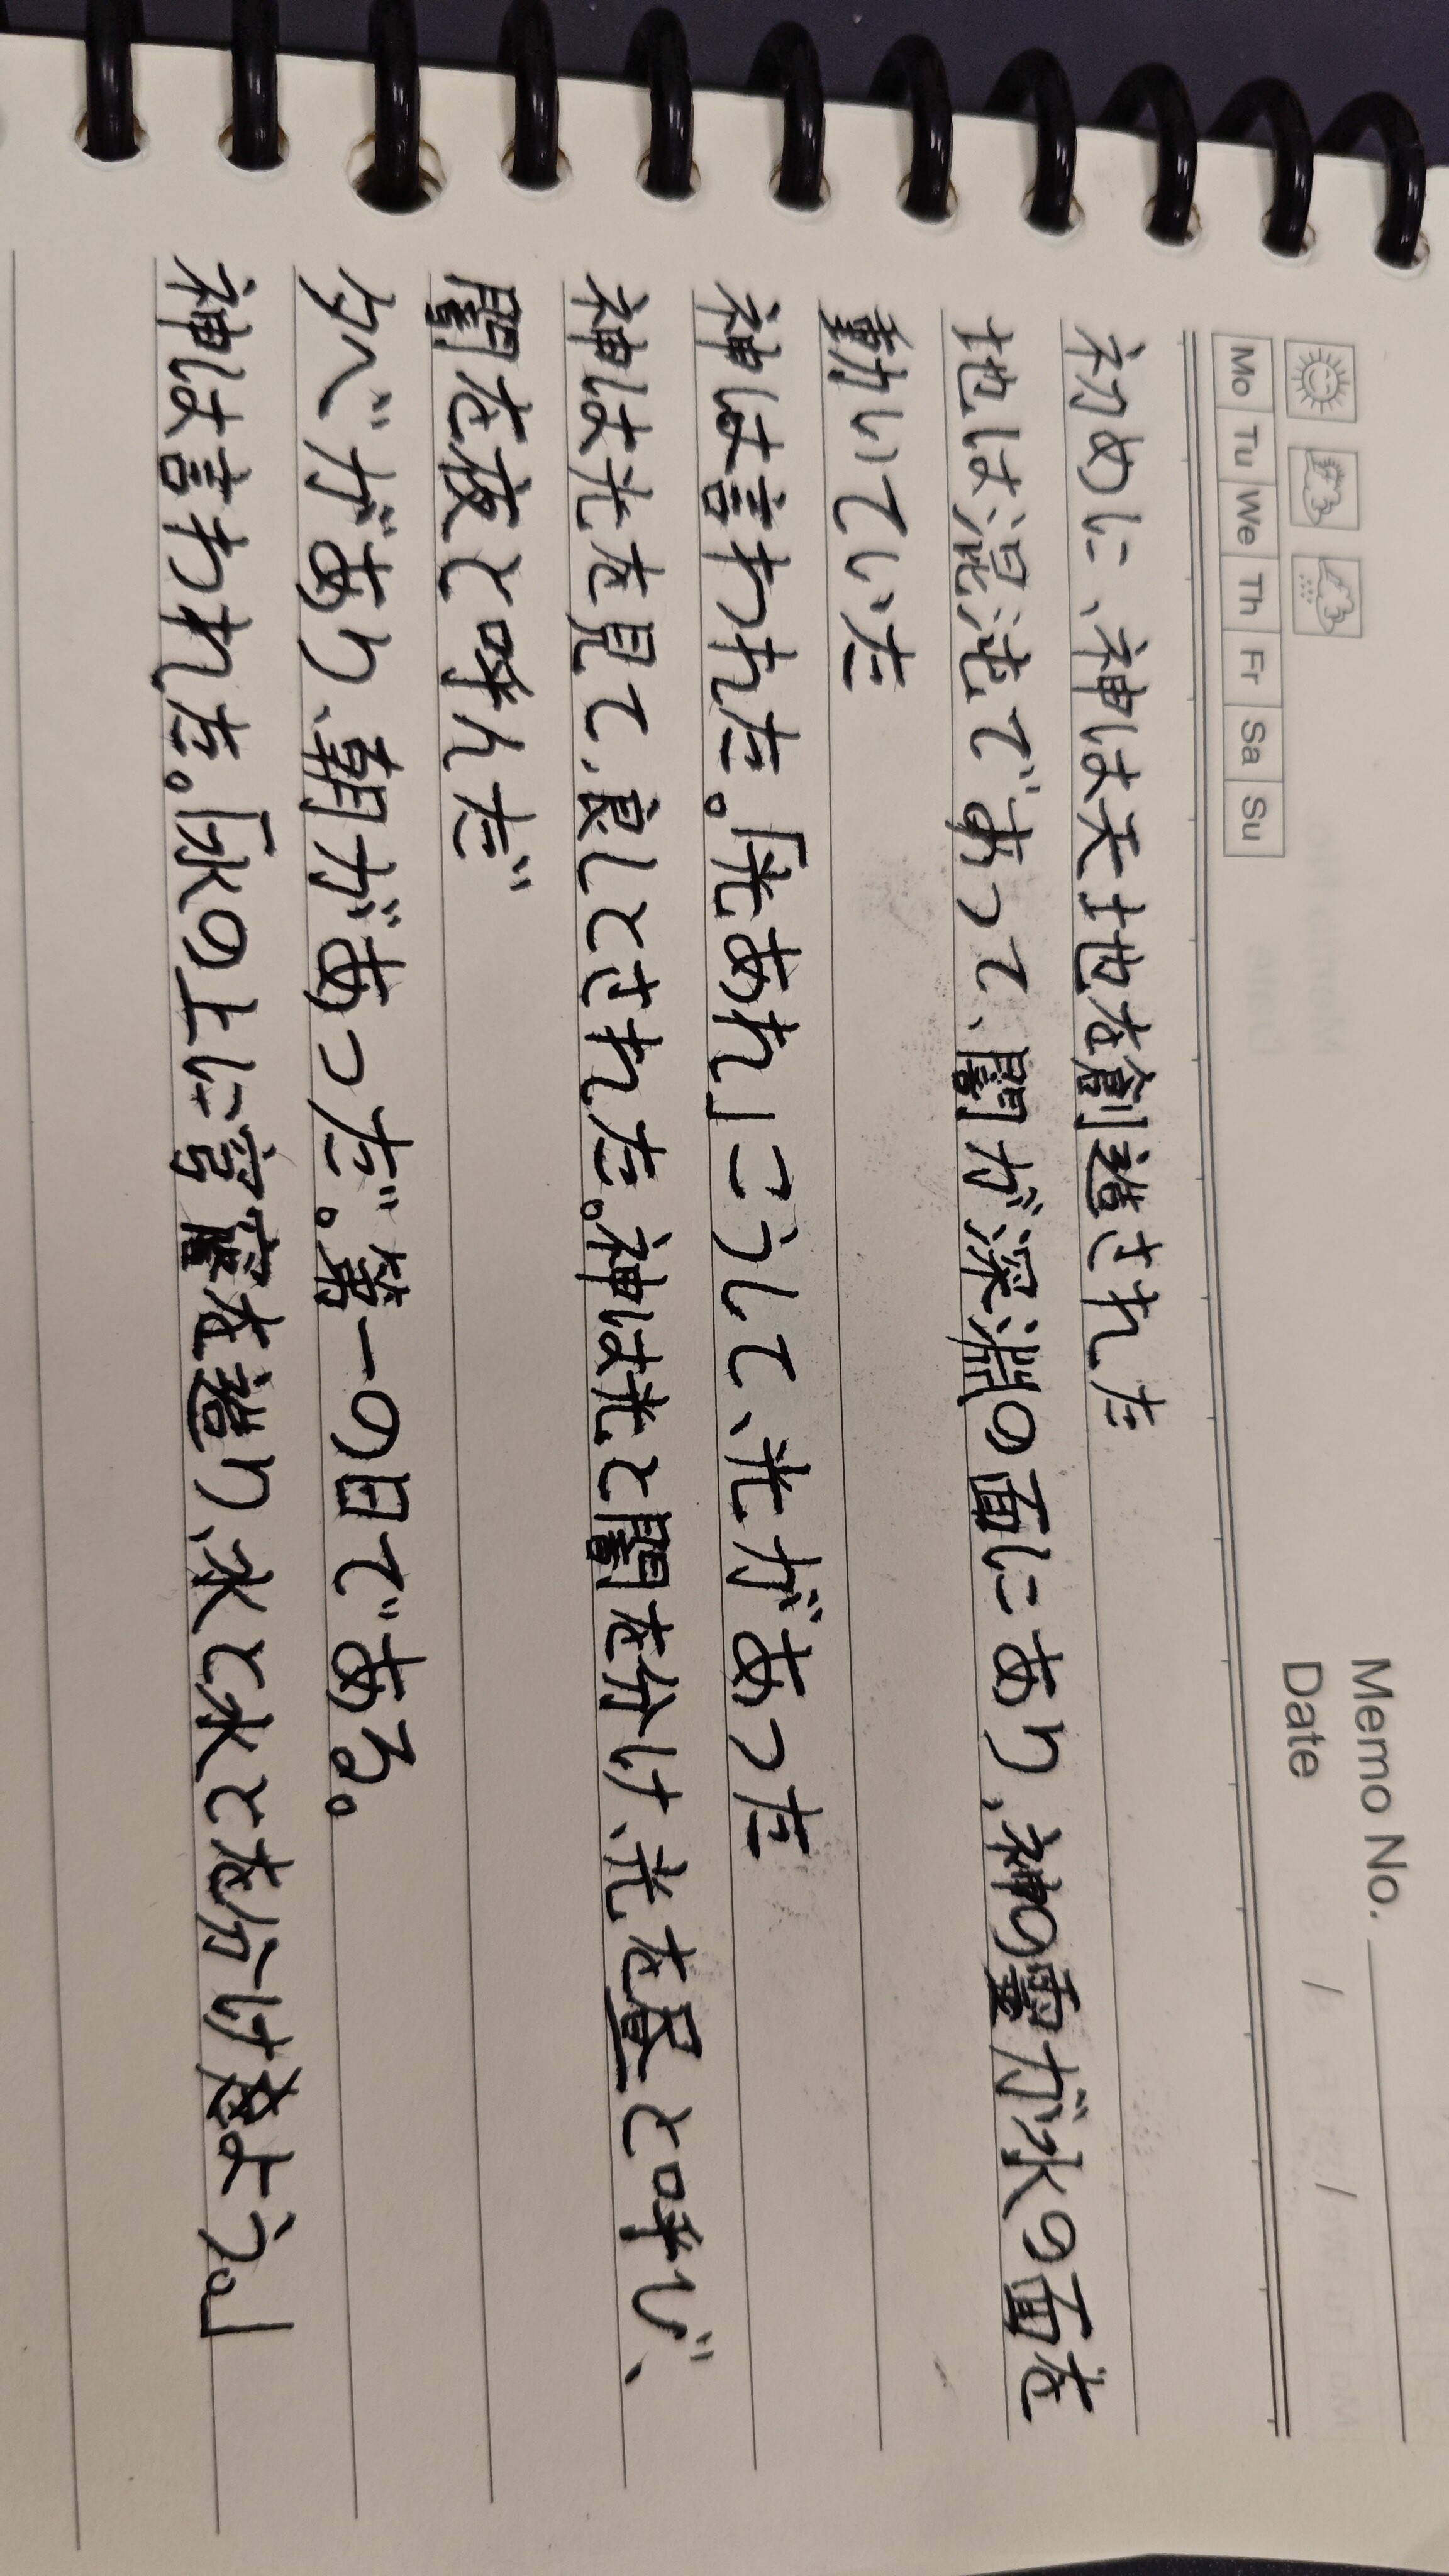 Memo No.
Date / /
Mo Tu We Th Fr Sa Su
初めに、神は天地を創造された
地は混沌であって、闇が深淵の面にあり、神の霊が水の面を
動いていた
神は言われた。「光あれ」こうして、光があった
神は光を見て、良しとされた。神は光と闇を分け、光を昼と呼び、
闇を夜と呼んだ
夕べがあり、朝があっだ。第一の日である。
神は言われた。「水の上に穹窿を造り、水と水とを分けよう。」